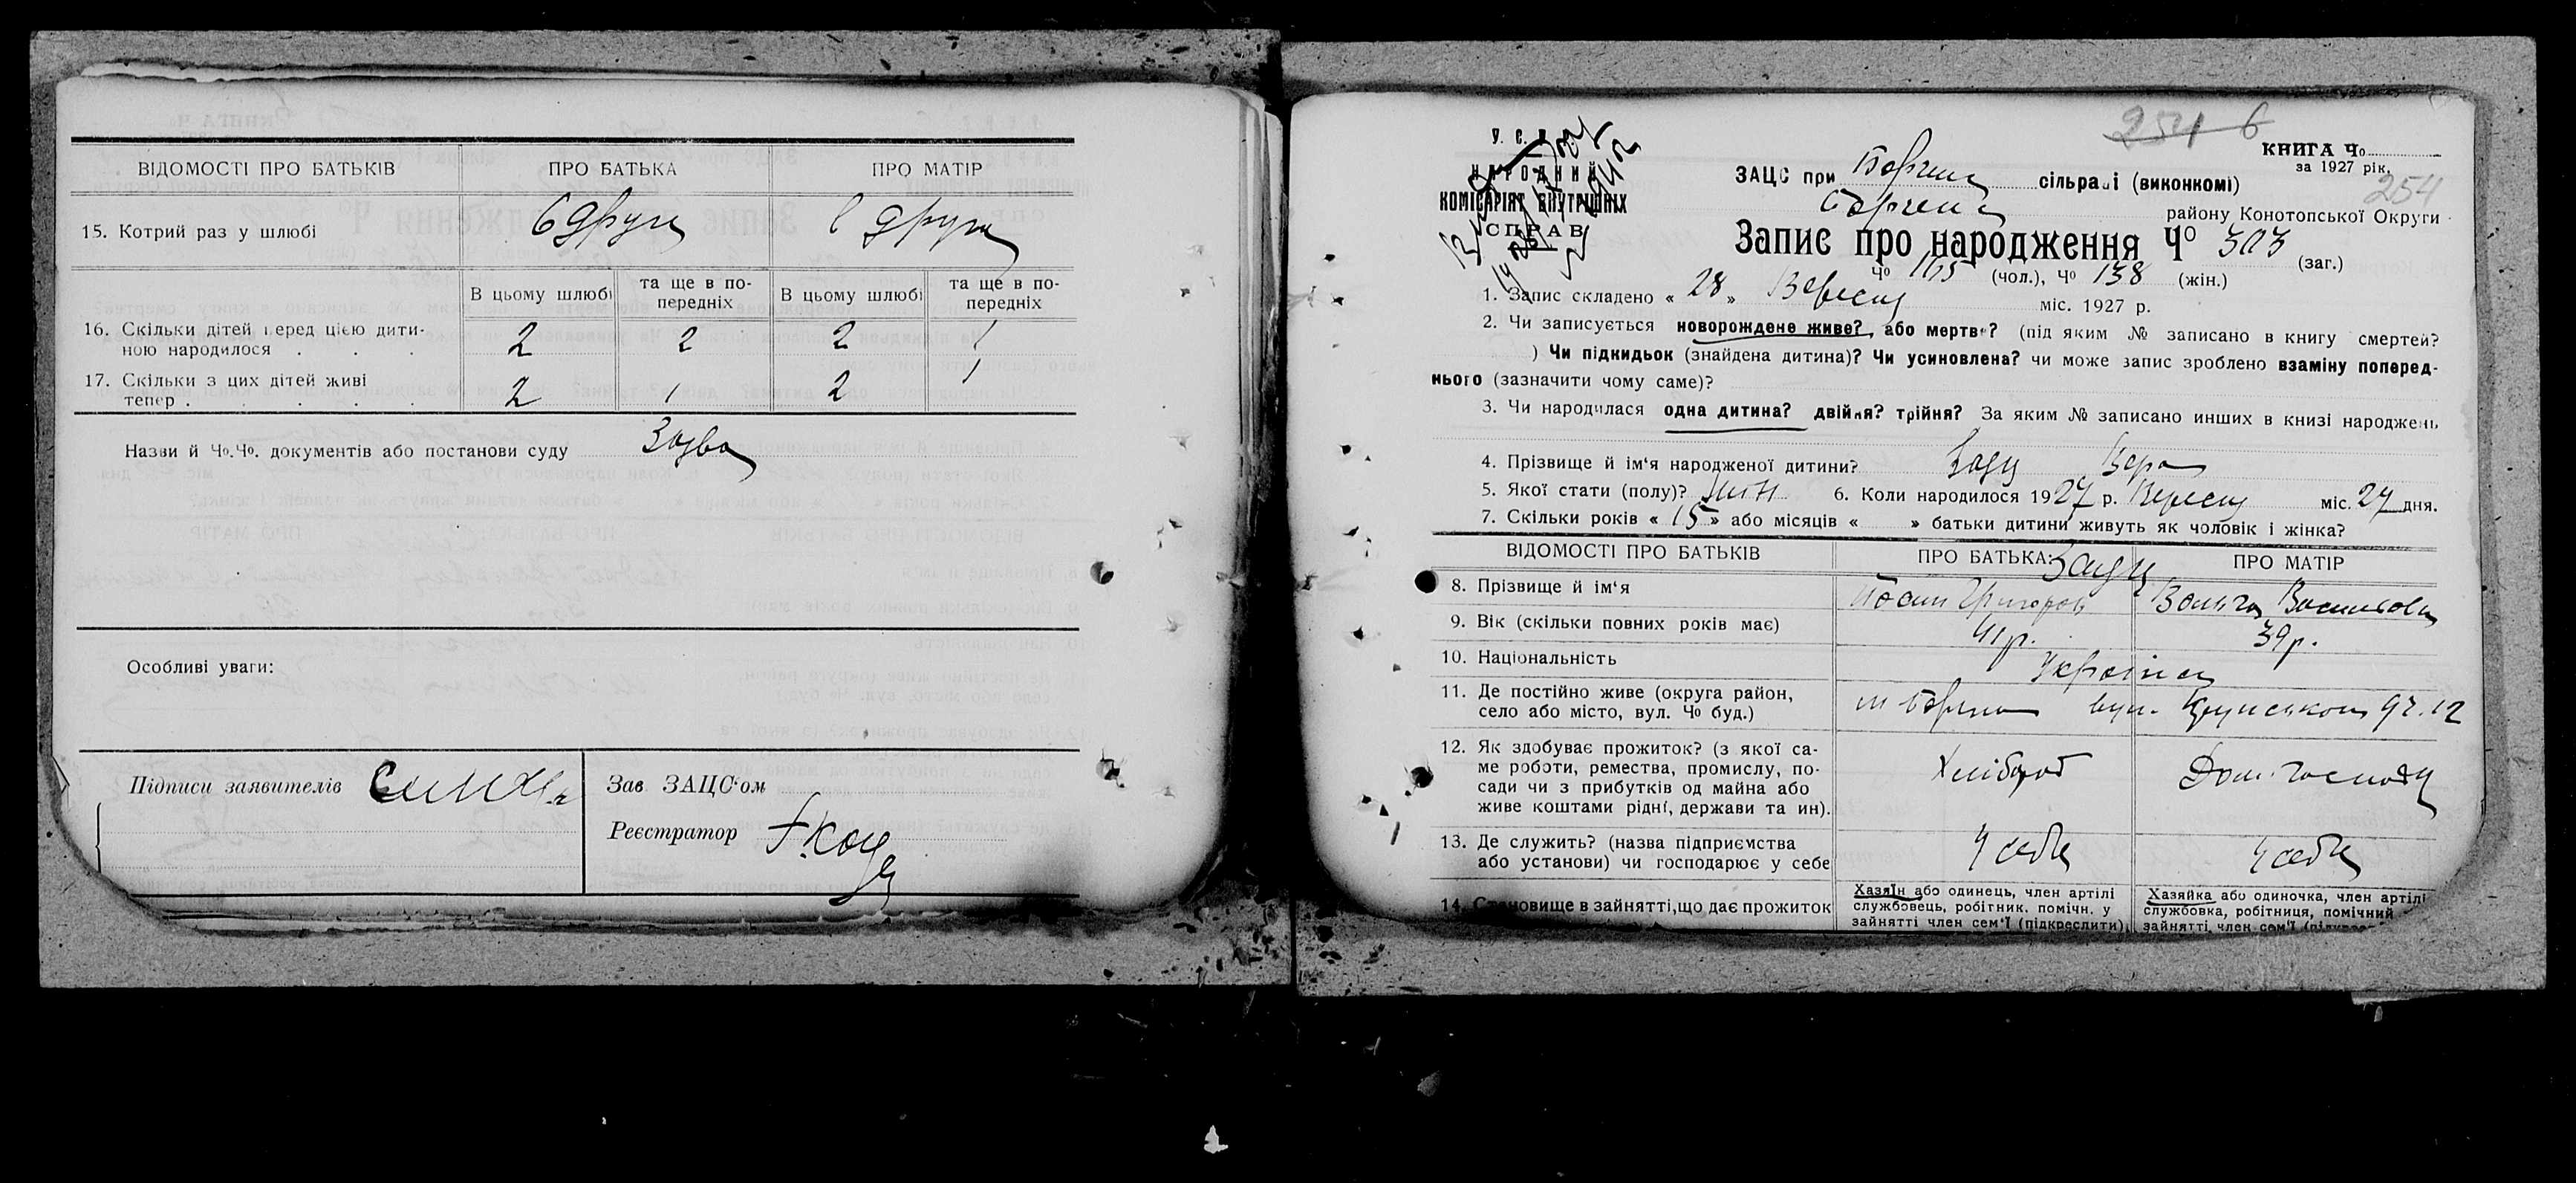 ВІДОМОСТІ ПРО БАТЬКІВ ПРО БАТЬКА ПРО МАТІР
15. Котрий раз у шлюбі вдруге вдруге
В цьому шлюбі та ще в по-передніх В цьому шлюбі та ще в по-передніх
16. Скільки дітей перед цією дити-
ною народилося . . . 2 2 2 1
17. Скільки з цих дітей живі
тепер . . . . . 2 1 2 1
Назви й Чо.Чо. документів або постанови суду Заява
Особливі уваги:
Підписи заявителів
Зав ЗАЦС‘ом
Реєстратор
254 6
У. С. Р. Р.
НАРОДНИЙ
КОМІСАРІЯТ ВНУТРІШНІХ
СПРАВ
КНИГА Чо
за 1927 рік.
254
ЗАЦС при Борзенс сільраді (виконкомі)
Борзенс району Конотопської Округи
Запис про народження Чо 303 (заг.)
Чо 165 (чол.), Чо 138 (жін.)
1. Запис складено « 28 » Вересня міс. 1927 р.
2. Чи записується новорождене живе? або мертве? (під яким № записано в книгу смертей?
) Чи підкидьок (знайдена дитина)? Чи усиновлена? чи може запис зроблено взаміну поперед-
нього (зазначити чому саме)?
3. Чи народилася одна дитина? двійня? трійня? За яким № записано инших в книзі народжень
4. Прізвище й ім‘я народженої дитини? Вера
5. Якої стати (полу)? жін 6. Коли народилося 1927 р. Вересня міс. 27 дня.
7. Скільки років « 15 » або місяців « » батьки дитини живуть як чоловік і жінка?
ВІДОМОСТІ ПРО БАТЬКІВ ПРО БАТЬКА: ПРО МАТІР
8. Прізвище й ім‘я Йосип Григоров Вольга Васильовн
9. Вік (скільки повних років має) 41 р. 39 р.
10. Національність Українці
11. Де постійно живе (округа район,
село або місто, вул. Чо буд.) м Борзна вул. 12
12. Як здобуває прожиток? (з якої са-
ме роботи, ремества, промислу, по-
сади чи з прибутків од майна або
живе коштами рідні, держави та ин). Хлібороб Дом. господ
13. Де служить? (назва підприємства
або установи) чи господарює у себе У себе У себе
14. Становище в зайнятті,що дає прожиток
Хазяїн або одинець, член артілі
службовець, робітник. помічн. у
зайнятті член сем‘ї (підкреслити)
Хазяйка або одиночка, член артілі
службовка, робітниця, помічний
зайнятті, член сем‘ї